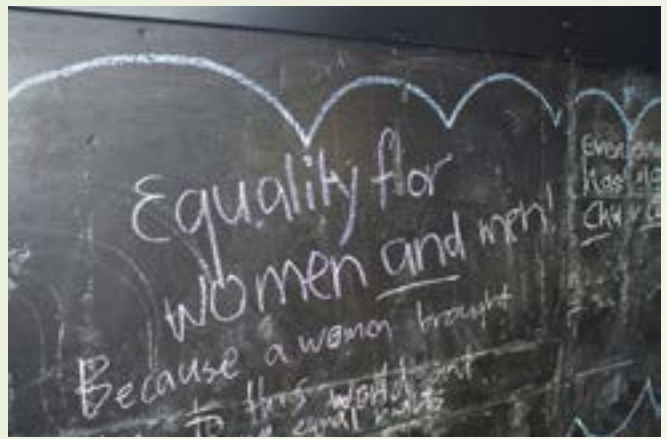 Equality for
women and men!
Because a women brought
to this world
Everyone
has